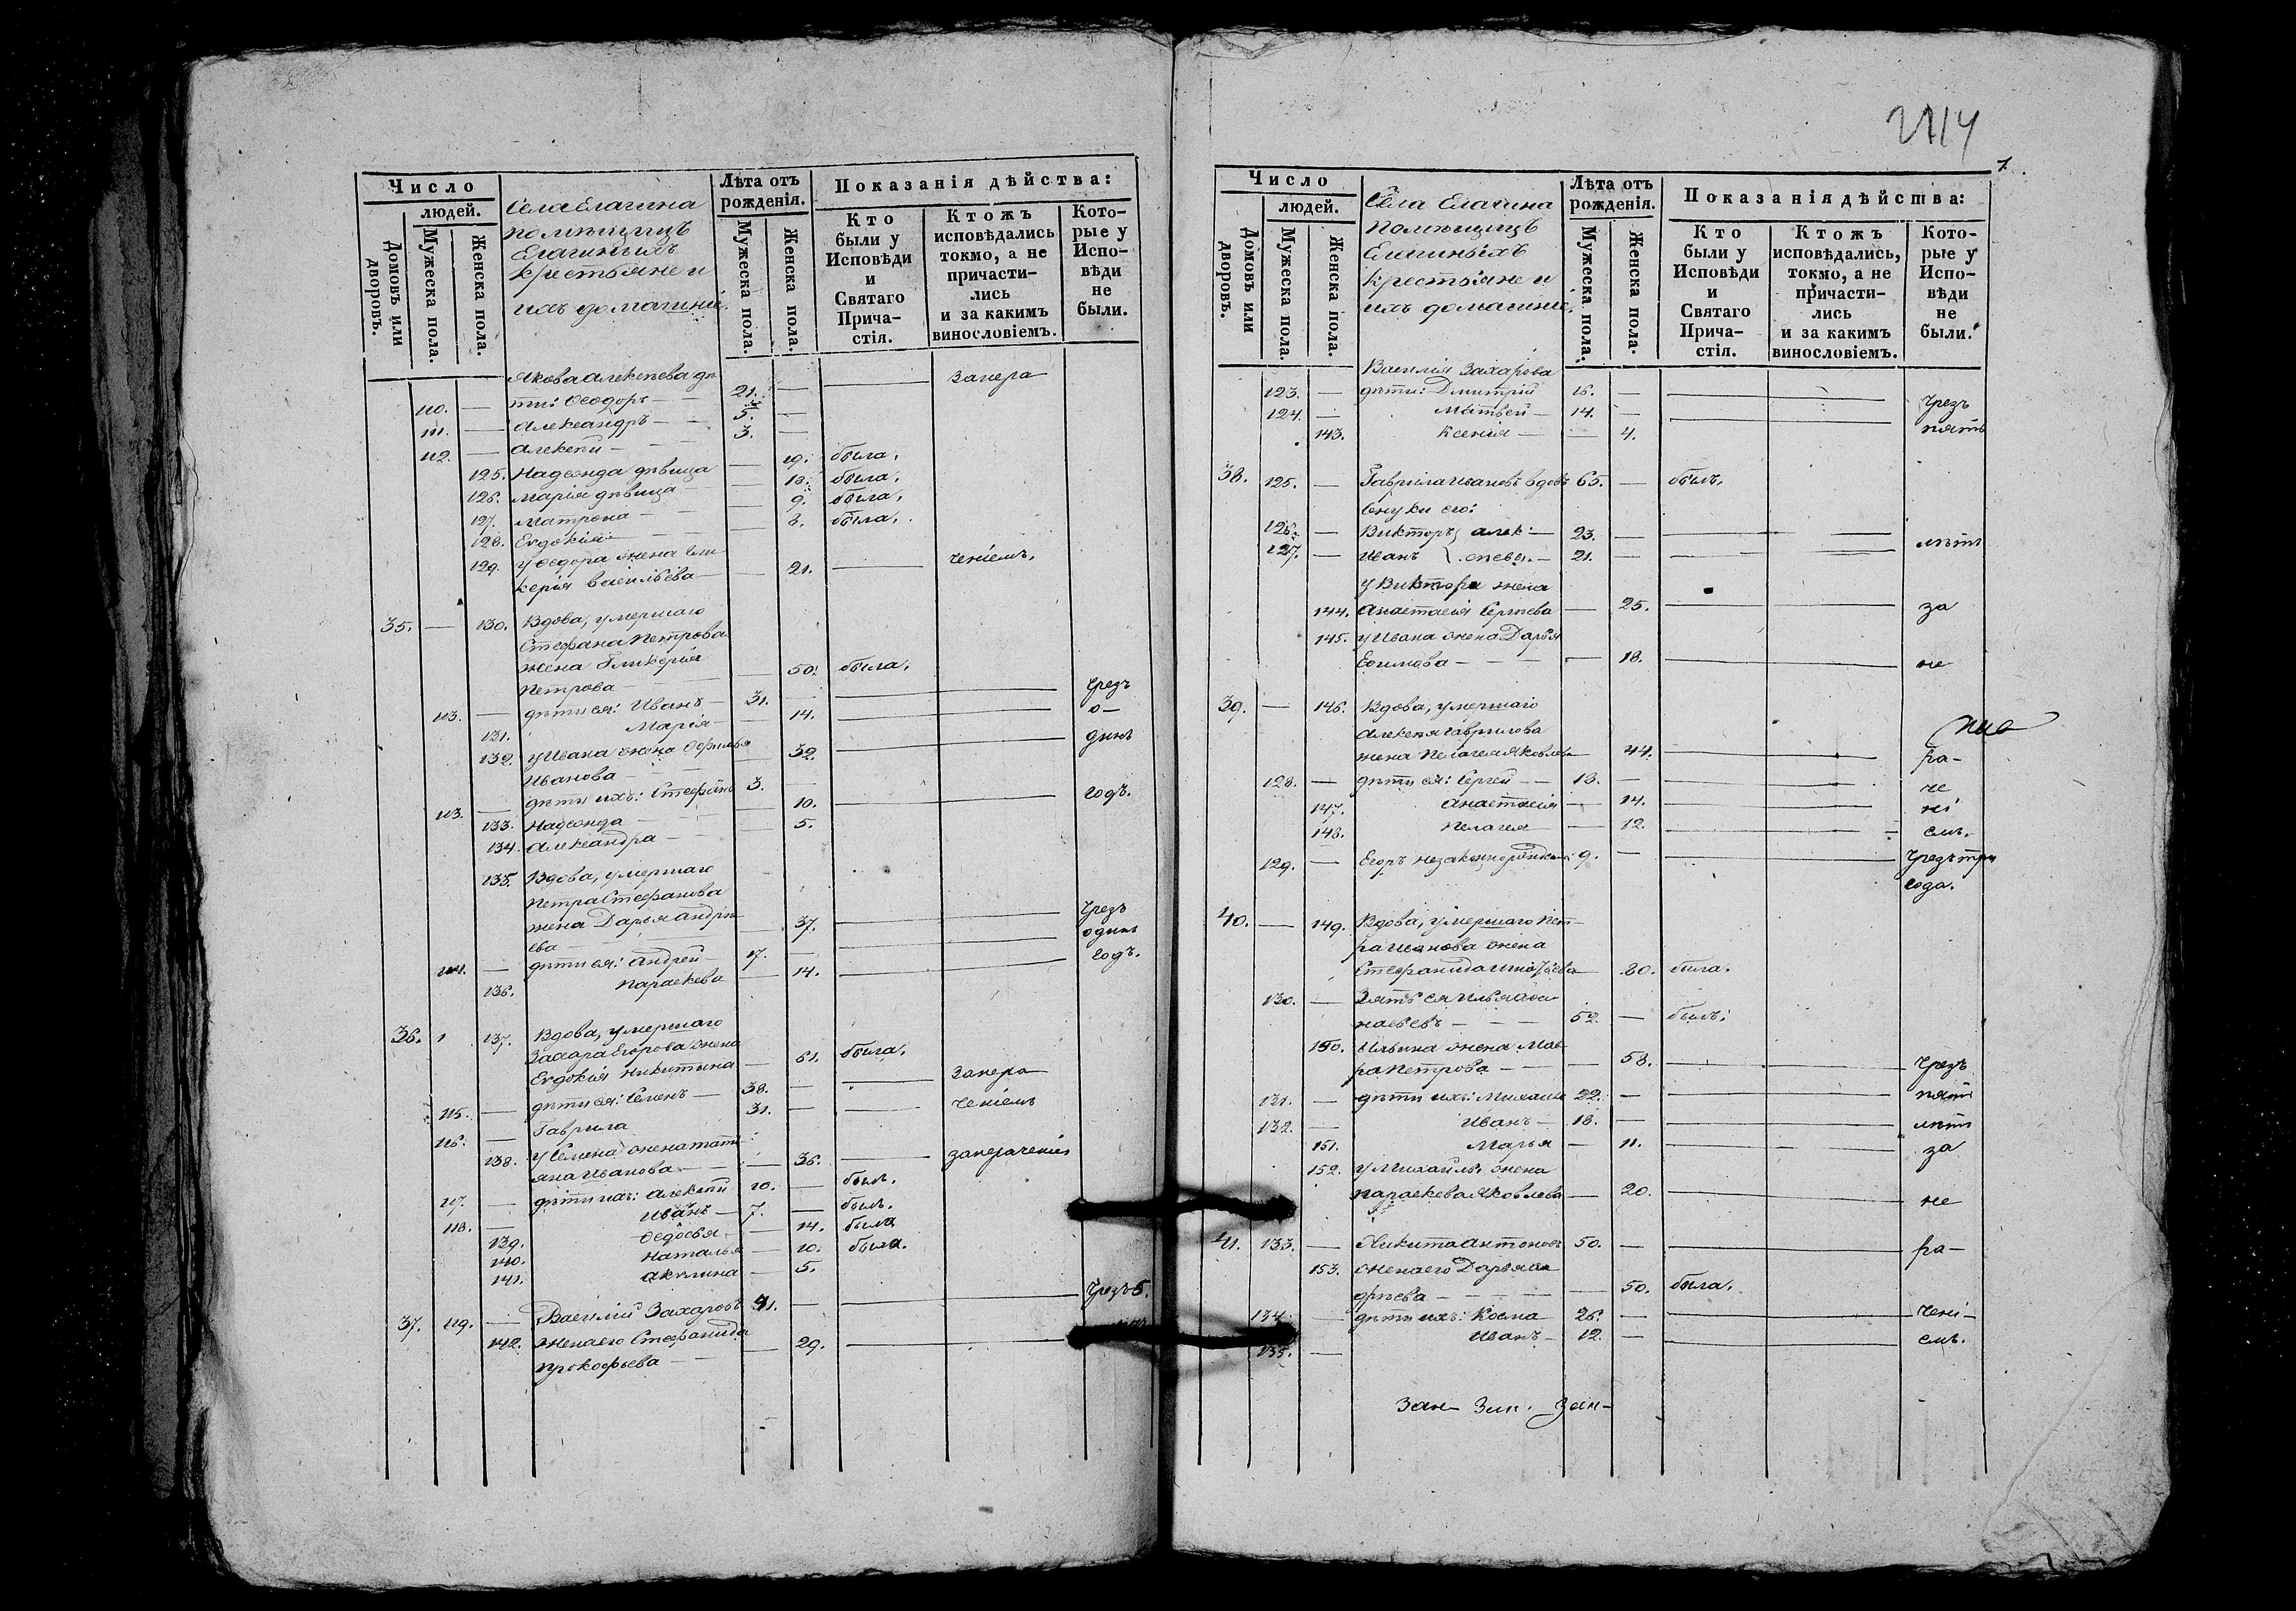 Число
людей.
Домовъ или дворовъ.
Мужеска пола.
Женска пола.
Села Елагина
помѣщицъ
Елагиныхъ
крестьяне и
ихъ домашніе.
Лѣта отъ
рожденія.
Мужеска пола.
Женска пола.
Показанія дѣйства:
Кто
были у
Исповѣди
и
Святаго
Прича-
стія.
Ктожъ
исповѣдались
токмо, а не
причасти-
лись
и за какимъ
винословіемъ.
Кото-
рые у
Испо-
вѣди
не
были.
Якова Алексѣева дѣ
110. — ти: Ѳеодоръ — 21. — — запера
111. — Александръ — 5. —
112. — Алексѣй — 3. —
125. Надежда дѣвица — 19. была.
126. Марія дѣвица — 13. была.
127. Матрона — 9. была.
128. Евдокія — 8. была.
129. у Ѳеодора жена Гли
керія Васильева — 21. — ченіемъ.
35. — 130. Вдова, умершаго
Стефана Петрова
жена Гликерія
Петрова — 50. была.
113. — дѣти ея: Иванъ — 31. — — чрезъ
131. Марія — 14. — о—
132. у Ивана жена
Иванова — 32. — динъ
113. — дѣти ихъ: Стефанъ 3. —
133. Надежда — 10. — годъ.
134. Александра — 5.
135. Вдова, умершаго
Петра Стефанова
жена Дарья Андрѣ
ева — 37. — чрезъ
114. — дѣти ея: Андрей — 17. — — одинъ
136. Параскева — 14. — годъ.
36. 1 137. Вдова, умершаго
Захара Егорова жена
Евдокія Никитина — 61. была.
115. — дѣти ея: Семенъ — 38. — — запера
116. — Гаврила 31. — — ченіемъ
138. у Семена жена Татi
яна Иванова — 36. — заперченіе
117. — дѣти ихъ: Алексѣй 10. — былъ.
118. — Иванъ — 7. — былъ.
139. Ѳедосья — 14. была
140. Наталья — 10. была.
141. Акилина — 5.
37. 119. — Василій Захаровъ 51. — — чрезъ 5.
142. жена его Стефанида
Прокофьева — 29. —
2714
7.
Число
людей.
Домовъ или дворовъ.
Мужеска пола.
Женска пола.
Села Елагина
Помѣщицъ
Елагиныхъ
крестьяне и
ихъ домашніе.
Лѣта отъ
рожденія.
Мужеска пола.
Женска пола.
Показанія дѣйства:
Кто
были у
Исповѣди
и
Святаго
Прича-
стія.
Ктожъ
исповѣдались,
токмо, а не
причасти-
лись
и за какимъ
винословіемъ.
Кото-
рые у
Испо-
вѣди
не
были.
Василія Захарова
123. — дѣти: Дмитрій 16. — — чрезъ
124. — Матвей — 14. — — пять
143. Ксенія — 4.
38. 125. — Гаврила Ивановъ вдовъ 65. — былъ.
внуки его:
126. — Викторъ, Алек 23. — —
127. — Иванъ сѣевы. — 21. — — лѣтъ
у Виктора жена
144. Анастасія Сергѣева — 25. — за
145. у Ивана жена Дарья
Ефимова — 18. — не
39. — 146. Вдова, умершаго
Алексѣя Гаврилова
жена Пелагея Яковлева 44. — ра—
128. — дѣти ея: Сергей — 18. — — че
147. Анастасія — 14. — ні
148. Пелагея — 12. — емъ.
129. — Егоръ незаконнорожденный 9. — — чрезъ три
года.
40. — 149. Вдова, умершаго Пет—
ра Иванова жена
Стефанида — 80. была.
130. — Зять ея Илья Аѳа
насьевъ — 52. — былъ.
150. Ильина жена Мав
ра Петрова — 58. — чрезъ
131. — дѣти ихъ: Михаилъ 22. — — пять
132. — Иванъ — 18. — — лѣтъ
151. Марья — 11. — за
152. у Михайлы жена
Параскева Яковлева — 20. — не
41. 133. — Никита Антоновъ 50. — — ра—
153. жена его Дарья Ан
дрѣева — 50. была.
134. — дѣти ихъ: Косма 26. — — чені—
135. — Иванъ — 12. — — емъ.